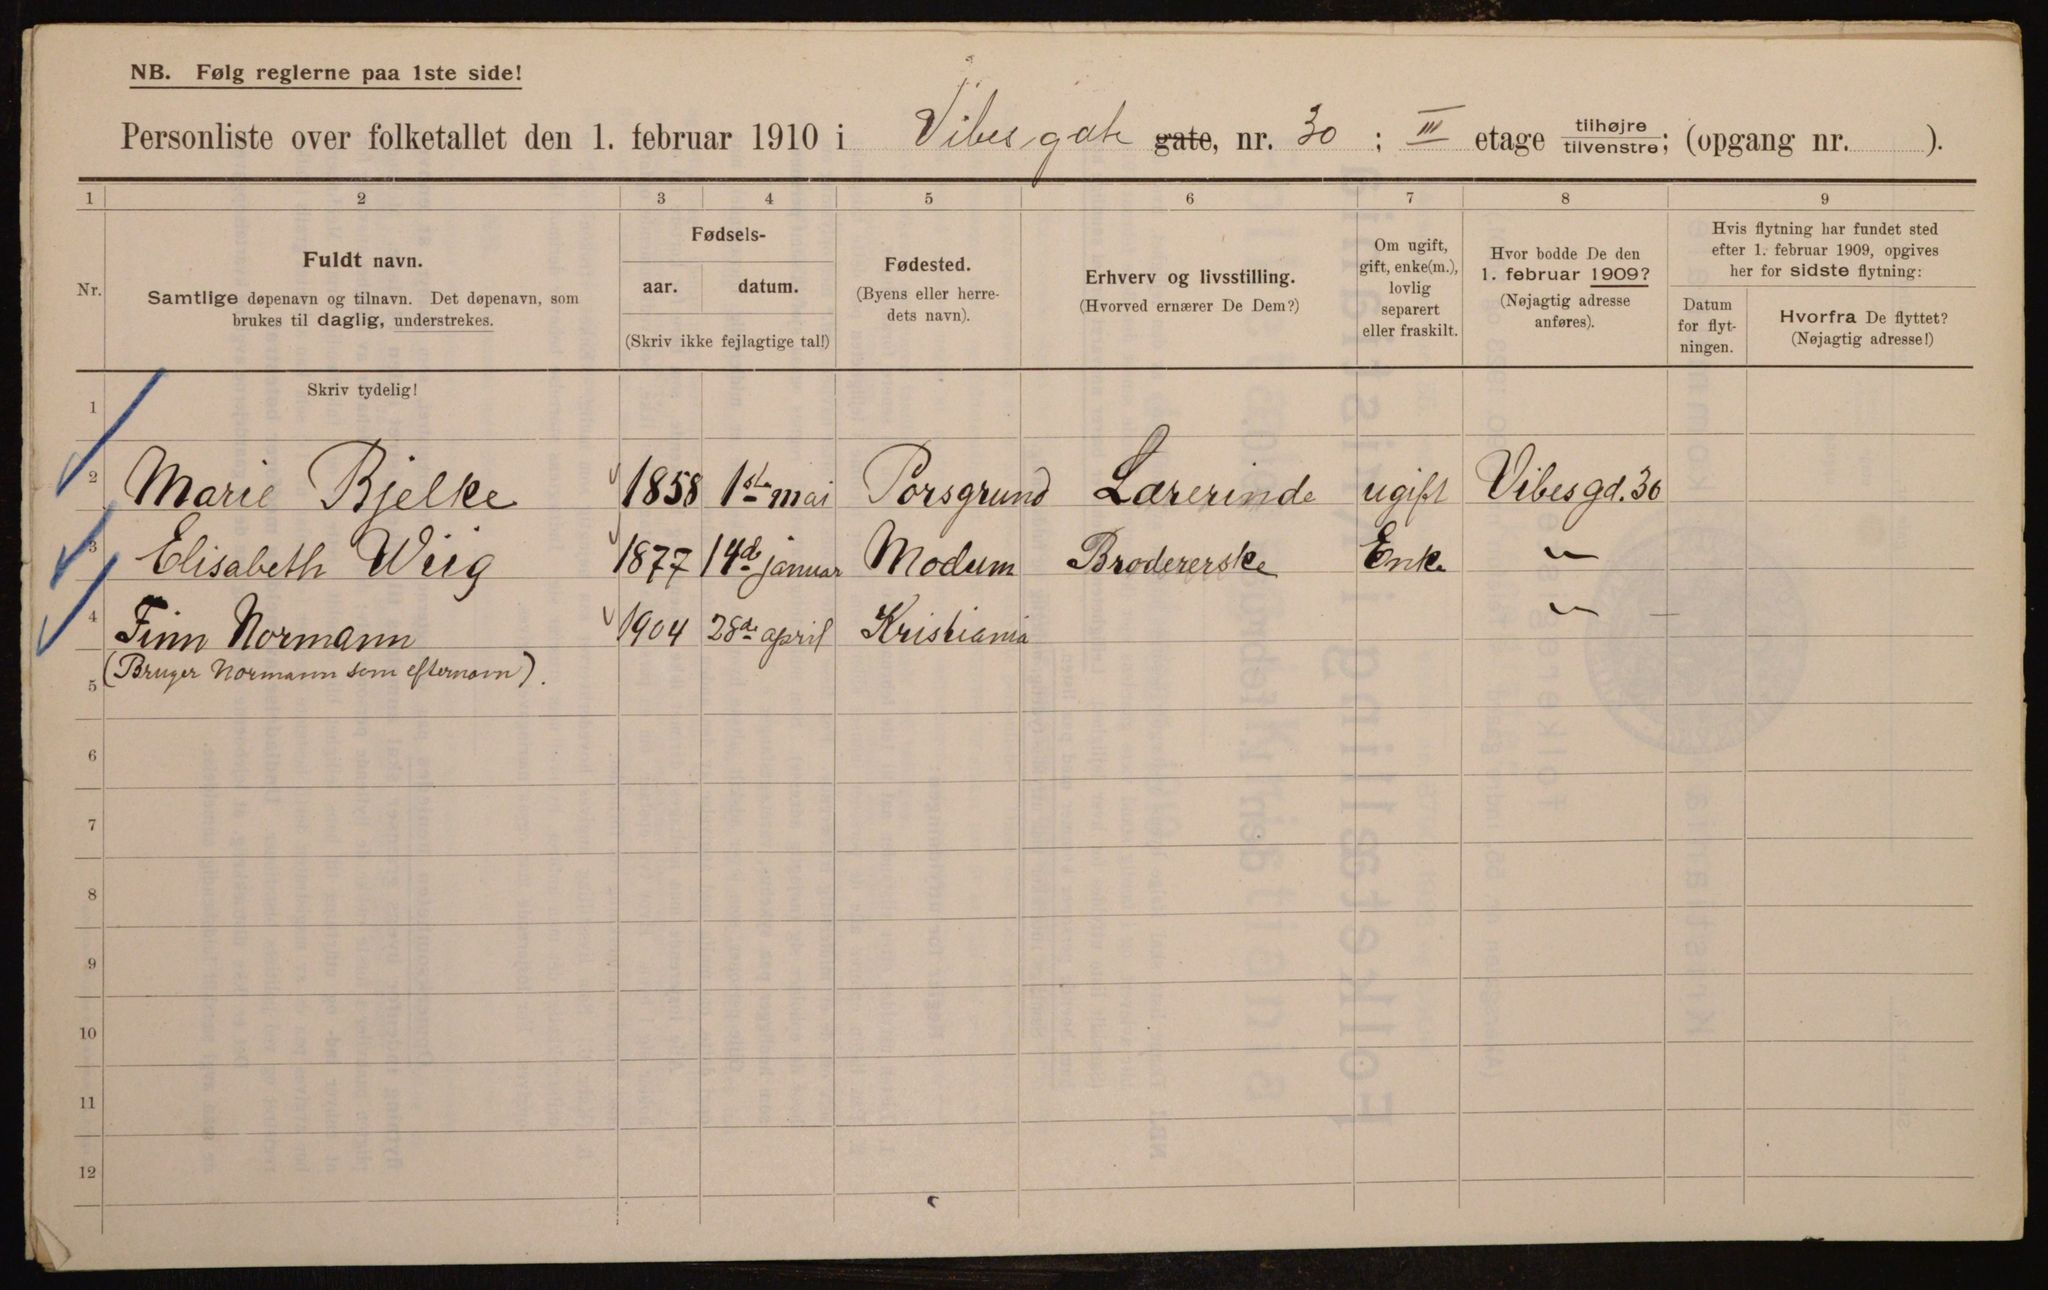 NB. Følg reglerne paa 1ste side!
Personliste over folketallet den 1. februar 1910 i Vibes gate gate, nr. 30 ; III etage tilhøjre/tilvenstre; (opgang nr. ).
1 2 3 4 5 6 7 8 9
Nr.
Fuldt navn.
Samtlige døpenavn og tilnavn. Det døpenavn, som
brukes til daglig, understrekes.
Fødsels-
aar. datum.
(Skriv ikke fejlagtige tal!)
Fødested.
(Byens eller herre-
dets navn).
Erhverv og livsstilling.
(Hvorved ernærer De Dem?)
Om ugift,
gift, enke(m.),
lovlig
separert
eller fraskilt.
Hvor bodde De den
1. februar 1909?
(Nøjagtig adresse
anføres).
Hvis flytning har fundet sted
efter 1. februar 1909, opgives
her for sidste flytning:
Datum
for flyt-
ningen.
Hvorfra De flyttet?
(Nøjagtig adresse!)
Skriv tydelig!
1
2 Marie Bjelke 1858 1ste mai Porsgrund Lærerinde ugift Vibesgd. 30
3 Elisabeth Wiig 1877 14de januar Modum Brodererske Enke "
4 Finn Normann 1904 28de april Kristiania "
5 (Bruger Normann som efternavn).
6
7
8
9
10
11
12